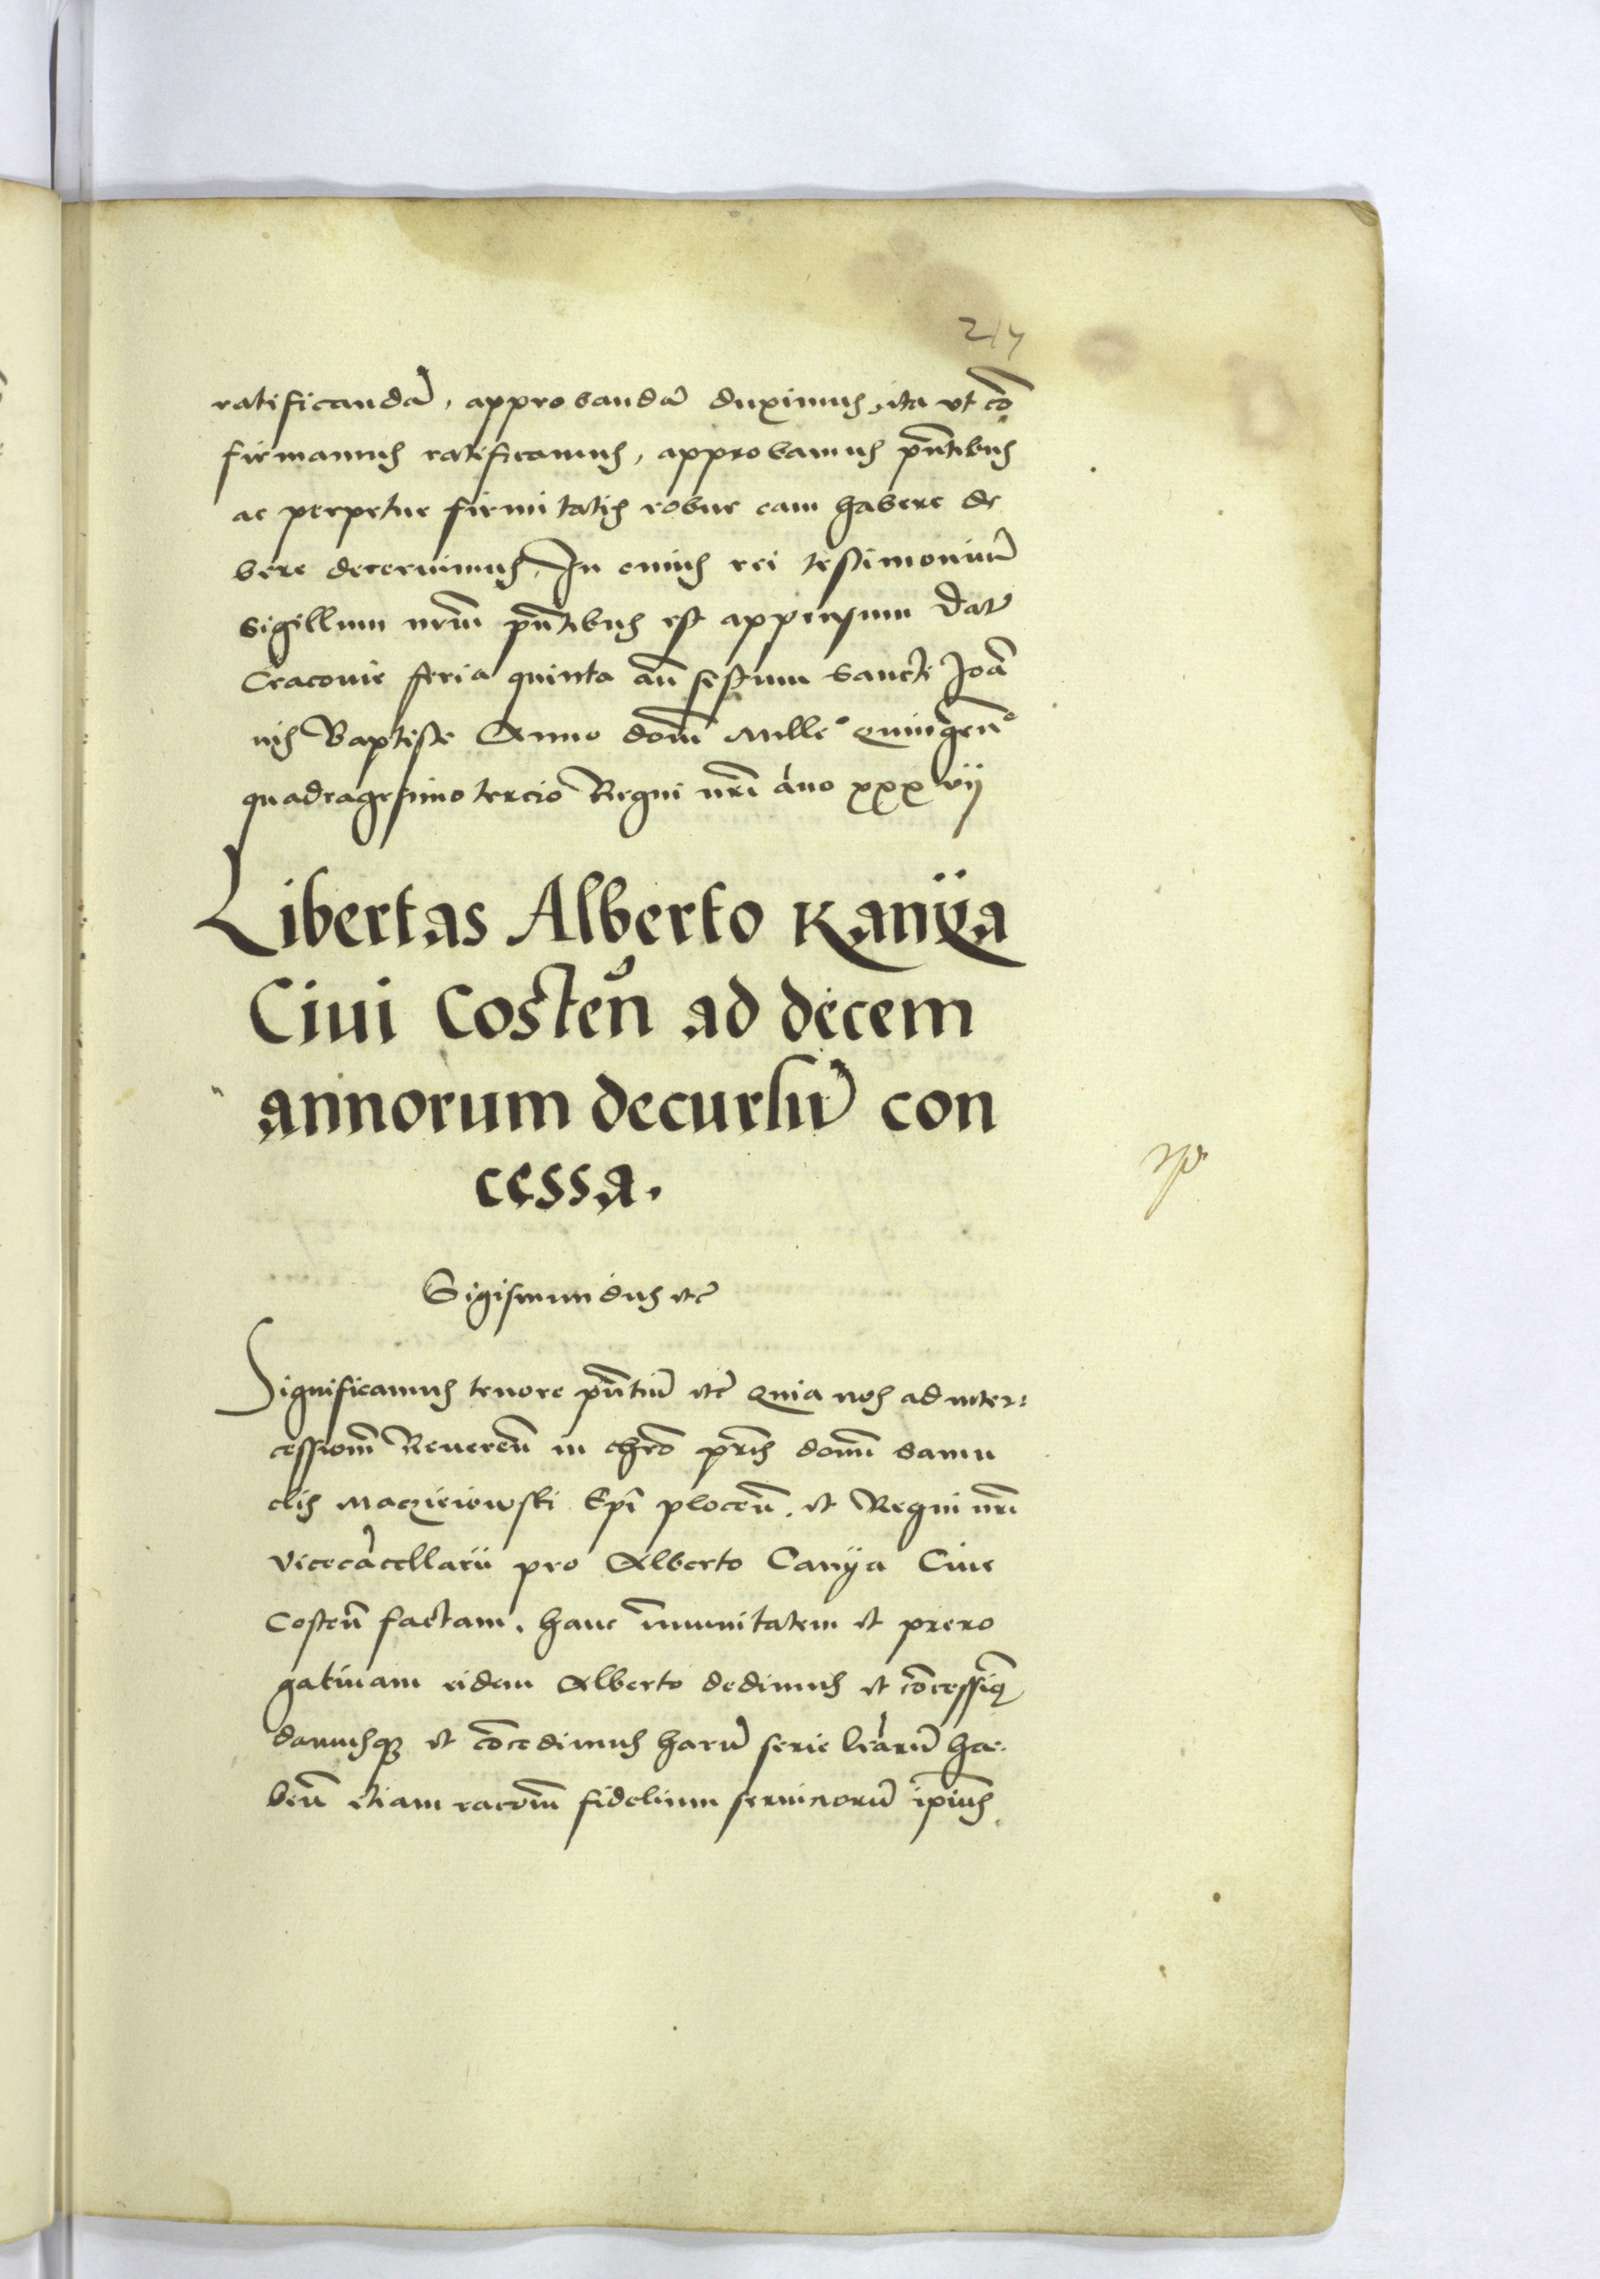 ratificandā, approbandā duximus, ita ut cō
firmamus ratificamus, approbamus pn̄tibus
ac perpetue firmitatis robur eam habere de
bere decernimus, In cuius rei testimoniū
sigillum nrm̄ pn̄tibus est appensum Dat̄
Cracovie feria quinta an̄ festum sancti Joā
nis Baptiste Anno domī Mille° quingen̄°
quadragesimo tercio Regni nrī āno xxxvij
Libertas Alberto Kanÿa
Ciui Costen̄ ad decem
annorum decursū con
cessa.
Sigismundus etc̄
Significamus tenore pn̄tiū etc̄ Quia nos ad inter:
cessionē Reueren̄ in chrō prīs domī Samu
elis Maczieiowski Epī plocen̄. et Regni nrī
Vicecācellarii pro Alberto Canÿa Ciue
Costen̄ factam, hanc īmunitatem et prero
gatiuam eidem Alberto dedimus et cōcessimꝫ
damusqꝫ et cōcedimus harū serie lrārū ha:
ben̄ etiam racōem̄ fidelium seruiciorū ipīus